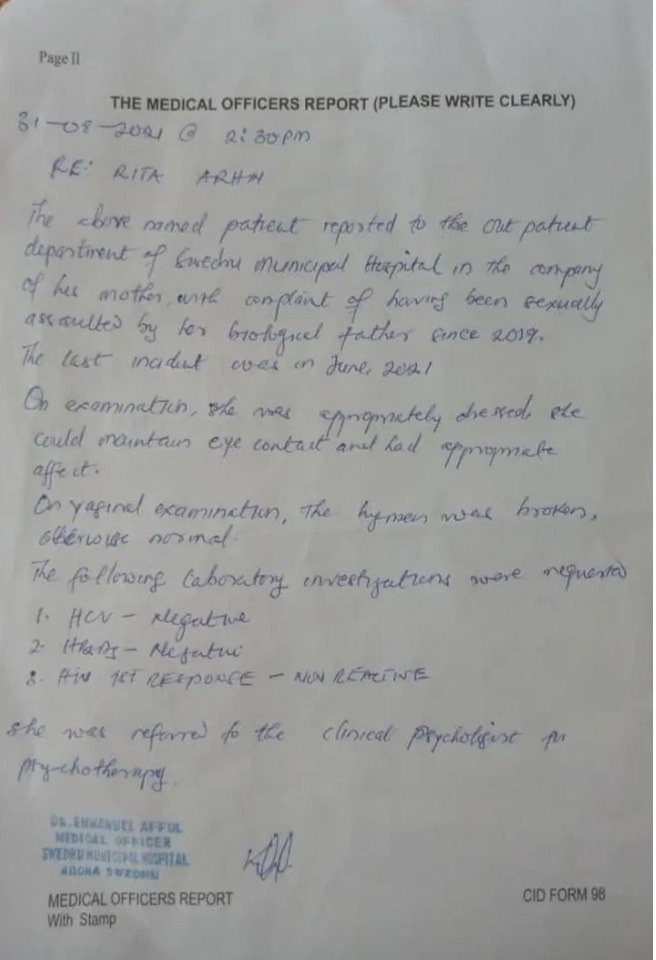 Page II
THE MEDICAL OFFICERS REPORT (PLEASE WRITE CLEARLY)
31-08-2021 @ 2:30pm
RE: RITA ARHIN
The above named patient reported to the out patient
department of Swedru Municipal Hospital in the company
of her mother, with complaint of having been sexually
assaulted by her biological father since 2019.
The last incident was in June, 2021
On examination, she was appropriately dressed, she
could maintain eye contact and had appropriate
affect.
On vaginal examination, the hymen was broken,
otherwise normal.
The following laboratory investigations were requested
1. HCV - Negative
2. HBsAg - Negative
3. HIV 1ST RESPONSE - NON REACTIVE
She was referred to the clinical psychologist for
psychotherapy.
DR. EMMANUEL AFFUL
MEDICAL OFFICER
SWEDRU MUNICIPAL HOSPITAL
AGONA SWEDRU
MEDICAL OFFICERS REPORT
With Stamp
CID FORM 98